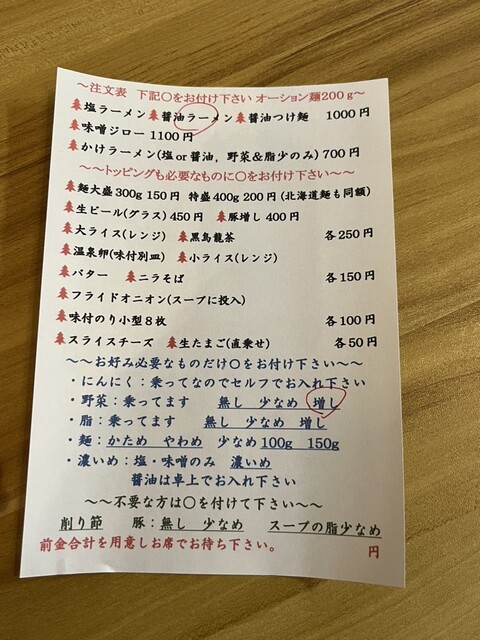 ～注文表 下記〇をお付け下さい オーション麺200g～
塩ラーメン 醤油ラーメン 醤油つけ麺 1000円
味噌ジロー 1100円
かけラーメン(塩or醤油,野菜&脂少のみ) 700円
～～トッピングも必要なものに〇をお付け下さい～
麺大盛300g 150円 特盛400g 200円 (北海道麺も同額)
生ビール(グラス) 450円 豚増し 400円
大ライス(レンジ) 黒烏龍茶 各250円
温泉卵(味付別皿) 小ライス(レンジ)
バター ニラそば 各150円
フライドオニオン(スープに投入)
味付のり小型8枚 各100円
スライスチーズ 生たまご(直乗せ) 各50円
～～お好み必要なものだけ〇をお付け下さい～～
・にんにく:乗ってなのでセルフでお入れ下さい
・野菜:乗ってます 無し 少なめ 増し
・脂:乗ってます 無し 少なめ 増し
・麺:かため やわめ 少なめ100g 150g
・濃いめ:塩・味噌のみ 濃いめ
醤油は卓上でお入れ下さい
～～不要な方は〇を付けて下さい～～
削り節 豚:無し 少なめ スープの脂少なめ
前金合計を用意しお席でお待ち下さい。 円